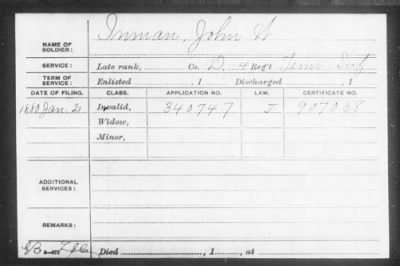 NAME OF SOLDIER: Inman, John W
SERVICE: Late rank, Co. D, 4 Reg't Tenn Inf
TERM OF SERVICE: Enlisted , 1 Discharged , 1
DATE OF FILING. CLASS. APPLICATION NO. LAW. CERTIFICATE NO.
1880 Jan. 2 Invalid, 340747 J 907038
Widow,
Minor,
ADDITIONAL SERVICES:
REMARKS:
Died , 1 , at